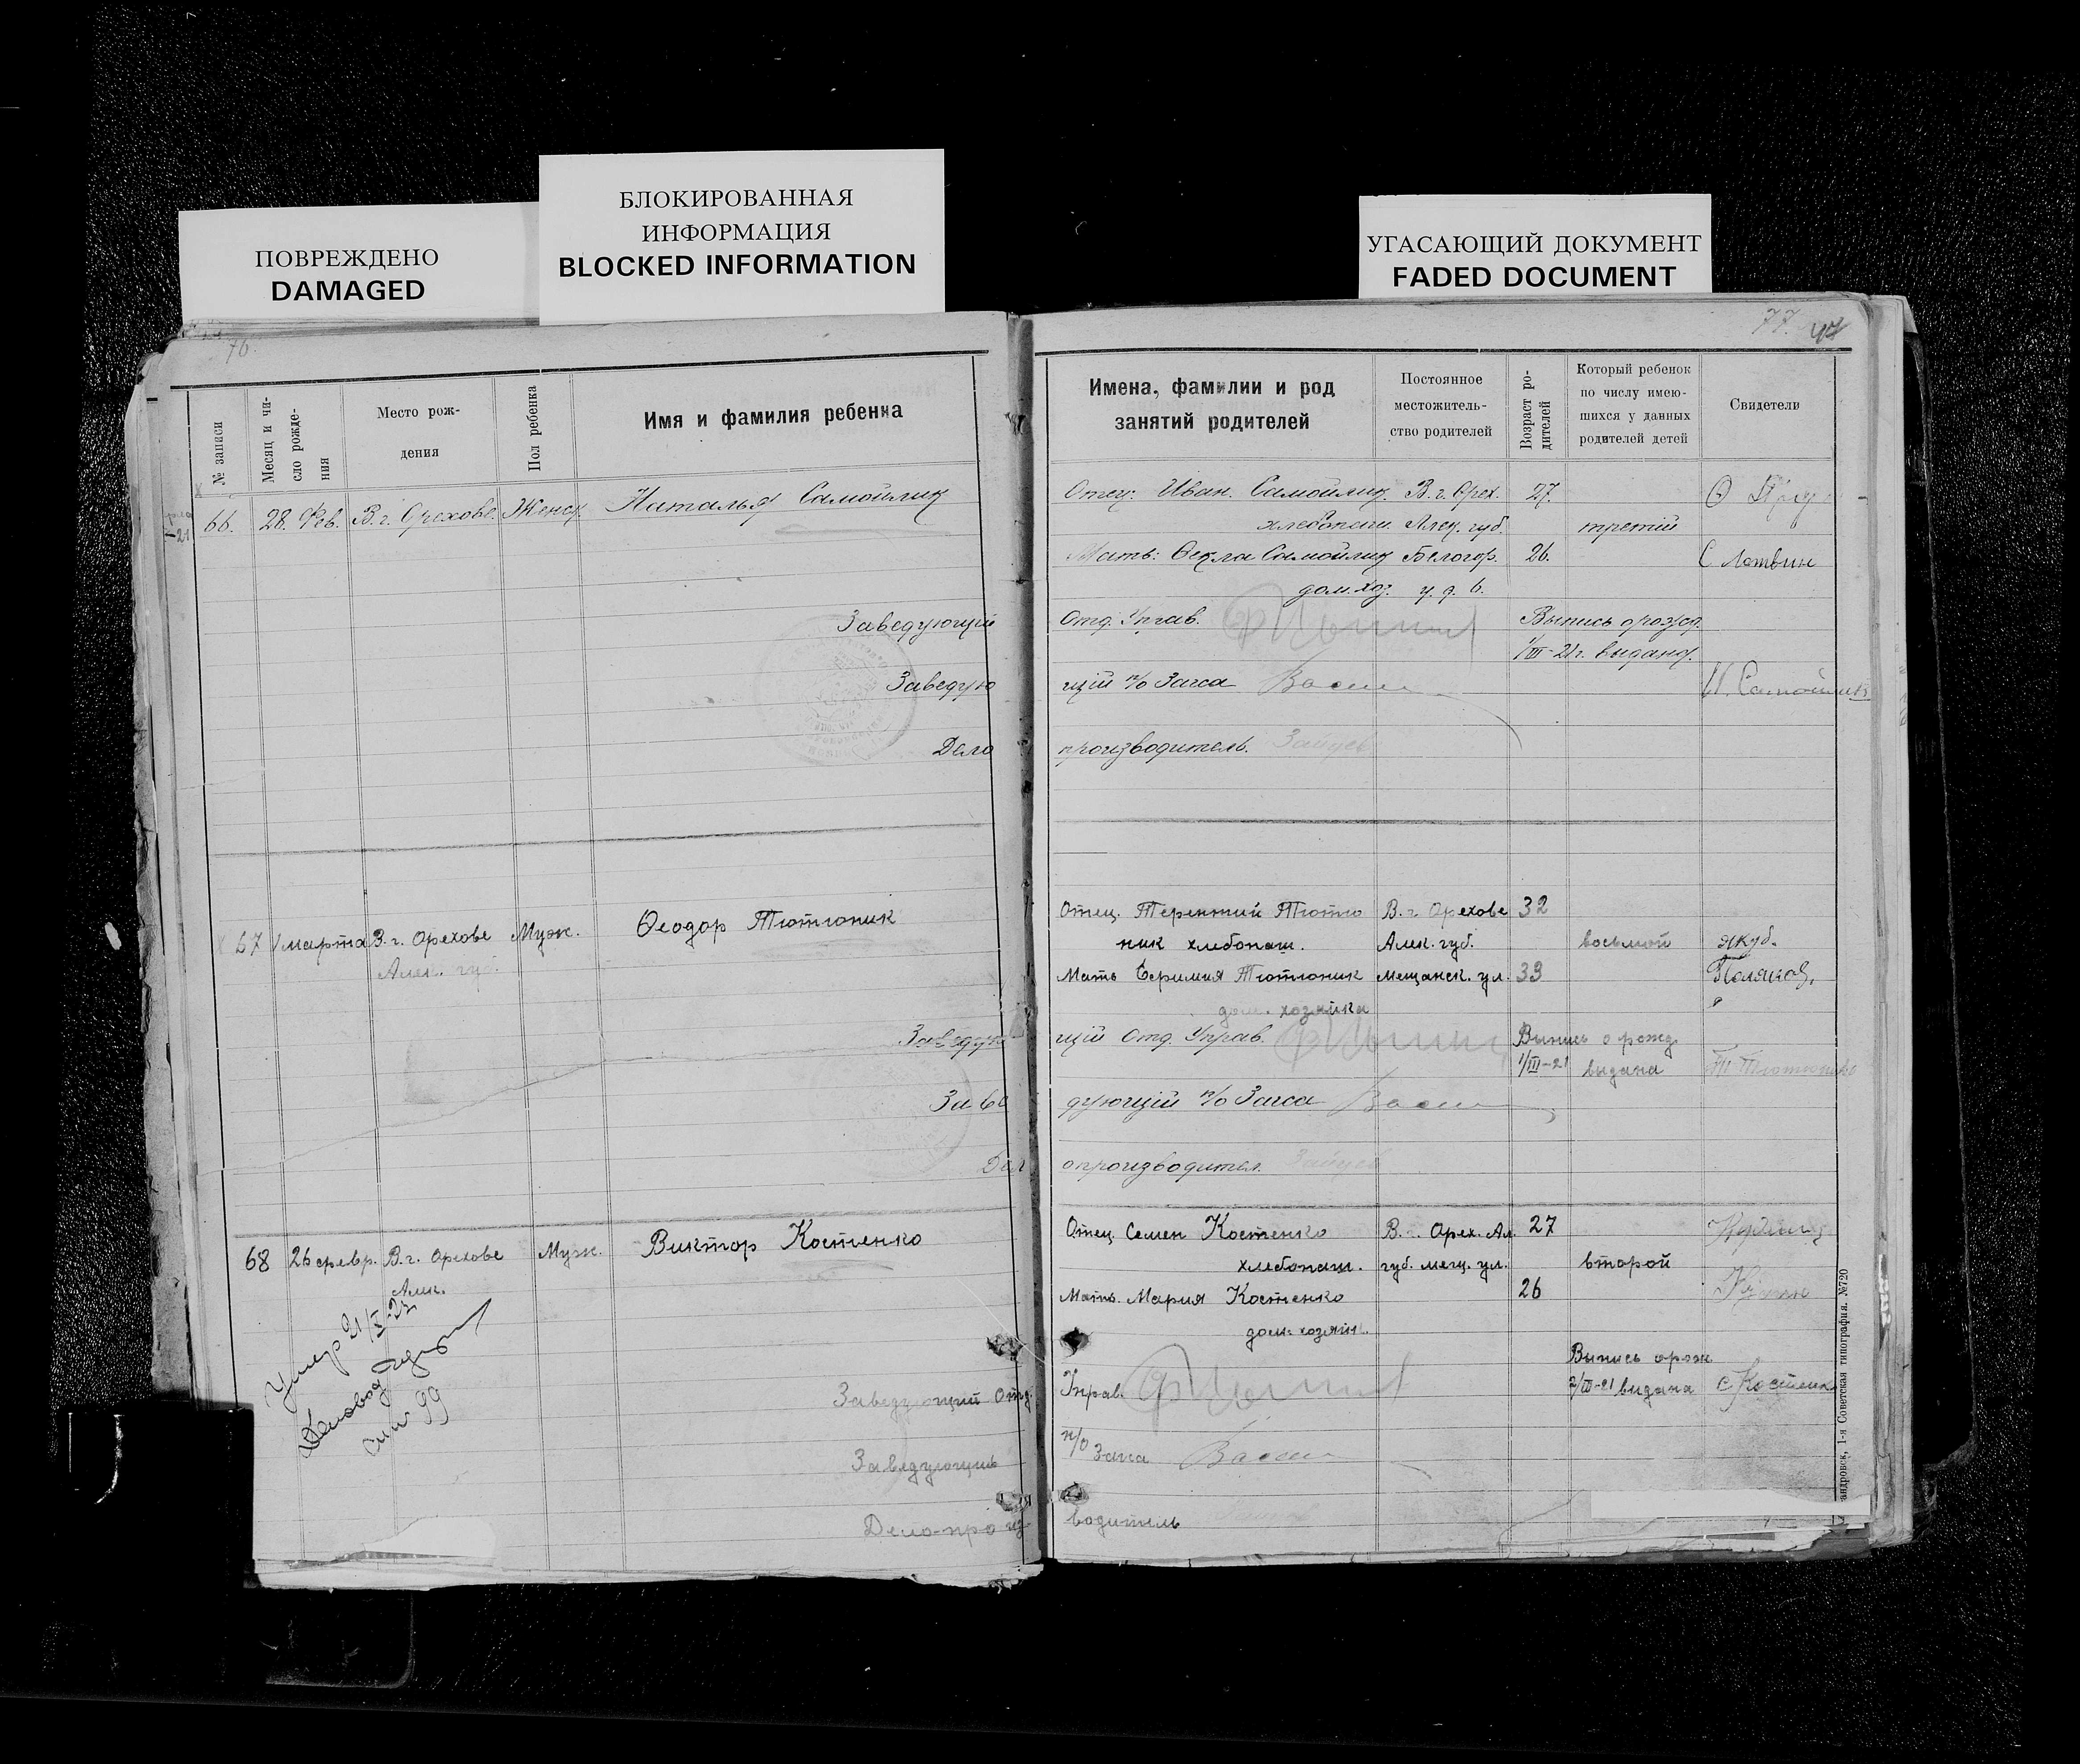 ПОВРЕЖДЕНО
DAMAGED
БЛОКИРОВАННАЯ
ИНФОРМАЦИЯ
BLOCKED INFORMATION
УГАСАЮЩИЙ ДОКУМЕНТ
FADED DOCUMENT
76.
№ записи
Месяц и чи-
сло рожде-
ния
Место рож-
дения
Пол ребенка
Имя и фамилия ребенка
66. 28. Фев. В. г. Орехове. Женск. Наталья Самойлик
Заведующий
Заведую
Дело
67 1 марта В. г. Орехове Муж. Ѳеодор Тютюник
Алек. губ.
Заведую
Заве
Дел
68 26 февр. В. г. Орехове Муж. Виктор Костенко
Алек.
Умер 21/X-22
99
Заведующий Отд.
Заведующий
Дело-произ
77.
Имена, фамилии и род
занятий родителей
Постоянное
местожитель-
ство родителей
Возраст ро-
дителей
Который ребенок
по числу имею-
шихся у данных
родителей детей
Свидетели
Отец: Иван. Самойлик. В. г. Орех. 27.
хлебопаш. Алек. губ. третий
Мать: Ѳекла Самойлик Белогор. 26. С Литвин
дом. хоз. у. д. 6.
Отд. Управ. Выпись о рожд.
1/III-21 г. выдана.
щій п/о Загса И. Самойлик
производитель. Зайцев
Отец. Терентий Тютю В. г. Орехове 32
ник хлебопаш. Алек. губ. восьмой Якуб.
Мать Ефимия Тютюник Мещанск. ул. 33 Поляков.
дом. хозяйка
щій Отд. Управ. Выпись о рожд.
1/III-21 выдана Т Тютюник
дующій п/о Загса
опроизводител. Зайцев
Отец Семен Костенко В. г. Орех. Ал. 27
хлебопаш. губ. мещ. ул. второй
Мать. Мария Костенко 26
дом. хозяйк.
Выпись о рож
Управ. 2/III-21 выдана С Костенко
п/о Загса
водитель
андровск, 1-я Советская типография. №720